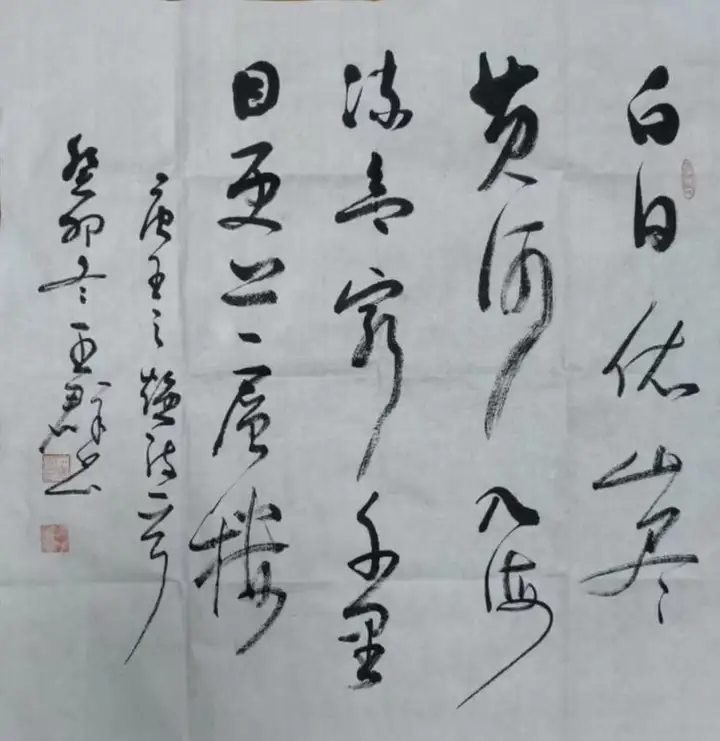 白日依山尽
黄河入海
流欲穷千里
目更上一層楼
唐王之诗一首
癸卯冬王书